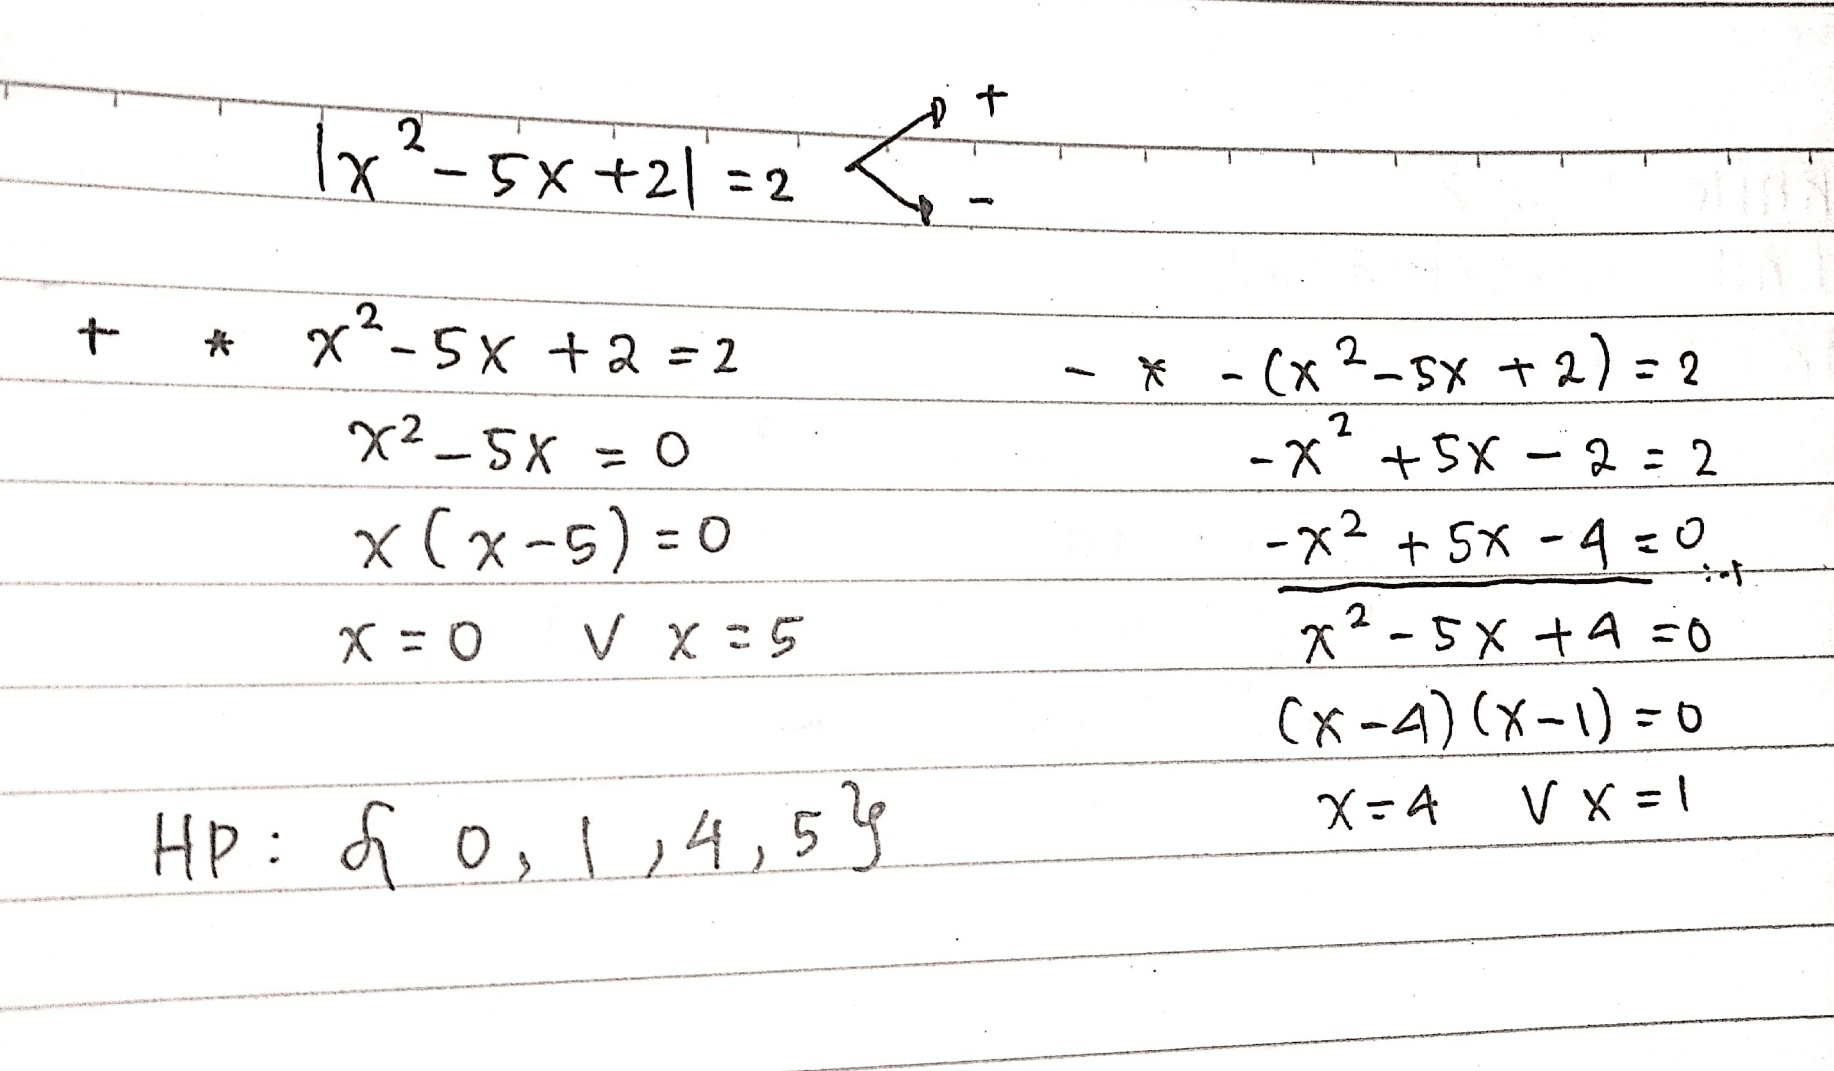 |x²-5x+2|=2 < + -
+ * x²-5x+2=2
x²-5x=0
x(x-5)=0
x=0 V x=5
- * -(x²-5x+2)=2
-x²+5x-2=2
-x²+5x-4=0
x²-5x+4=0
(x-4)(x-1)=0
x=4 V x=1
HP: { 0, 1, 4, 5}